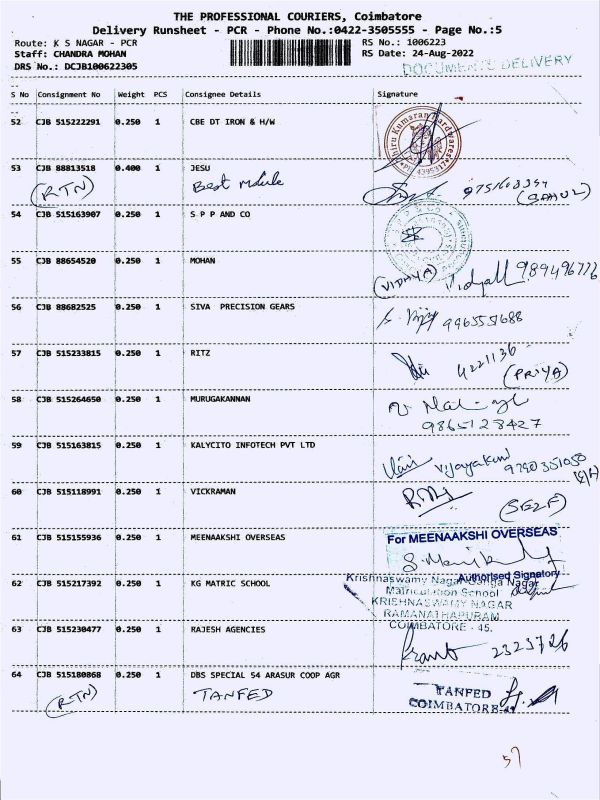 THE PROFESSIONAL COURIERS, Coimbatore
Delivery Runsheet - PCR - Phone No.:0422-3505555 - Page No.:5
Route: K S NAGAR - PCR RS No.: 1006223
Staff: CHANDRA MOHAN RS Date: 24-Aug-2022
DRS No.: DCJB100622305 DOCUMENTS DELIVERY
S No Consignment No Weight PCS Consignee Details Signature
52 CJB 515222291 0.250 1 CBE DT IRON & H/W
53 CJB 88813518 0.400 1 JESU
(RTN) Best
54 CJB 515163907 0.250 1 S P P AND CO
55 CJB 88654520 0.250 1 MOHAN
(VIDHYA)
56 CJB 88682525 0.250 1 SIVA PRECISION GEARS
9965551688
57 CJB 515233815 0.250 1 RITZ
4221136
(PRIYA)
58 CJB 515264650 0.250 1 MURUGAKANNAN
9865128427
59 CJB 515163815 0.250 1 KALYCITO INFOTECH PVT LTD
60 CJB 515118991 0.250 1 VICKRAMAN
(SELF)
61 CJB 515155936 0.250 1 MEENAAKSHI OVERSEAS
For MEENAAKSHI OVERSEAS
Authorised Signatory
62 CJB 515217392 0.250 1 KG MATRIC SCHOOL
Krishnaswamy Nagar Ganga Nagar
Matriculation School
KRISHNASWAMY NAGAR
RAMANATHAPURAM
COIMBATORE - 45.
63 CJB 515230477 0.250 1 RAJESH AGENCIES
2323726
64 CJB 515180868 0.250 1 DBS SPECIAL 54 ARASUR COOP AGR
(RTN) TANFED
TANFED
COIMBATORE
57